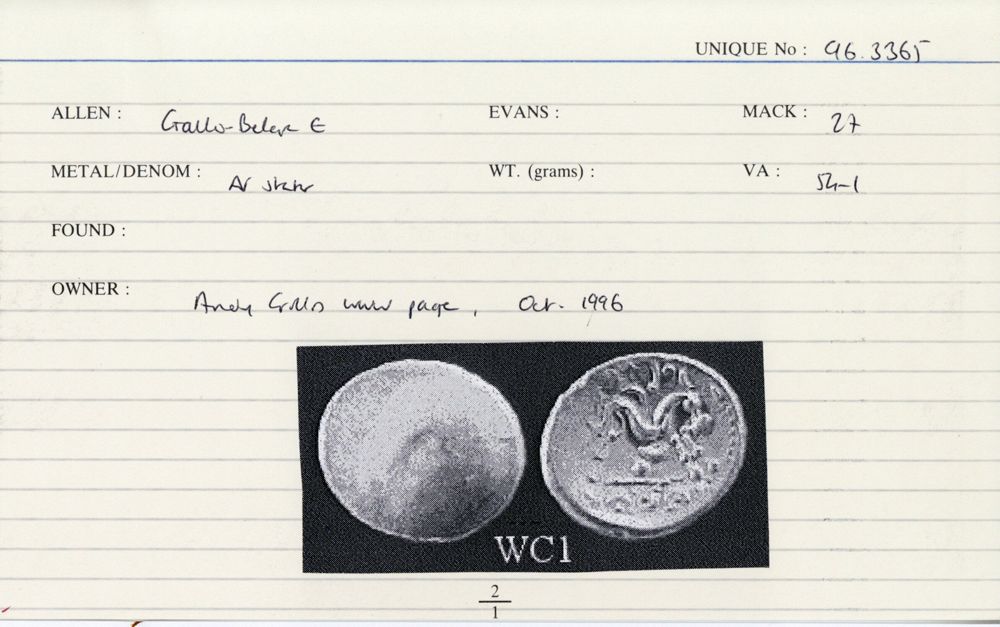 UNIQUE No : 96.3365
ALLEN : Gallo-Belgic E EVANS : MACK : 27
METAL/DENOM : AV stater WT. (grams) : VA : 54-1
FOUND :
OWNER : Andy Grills www page, Oct. 1996
WC1
2
1